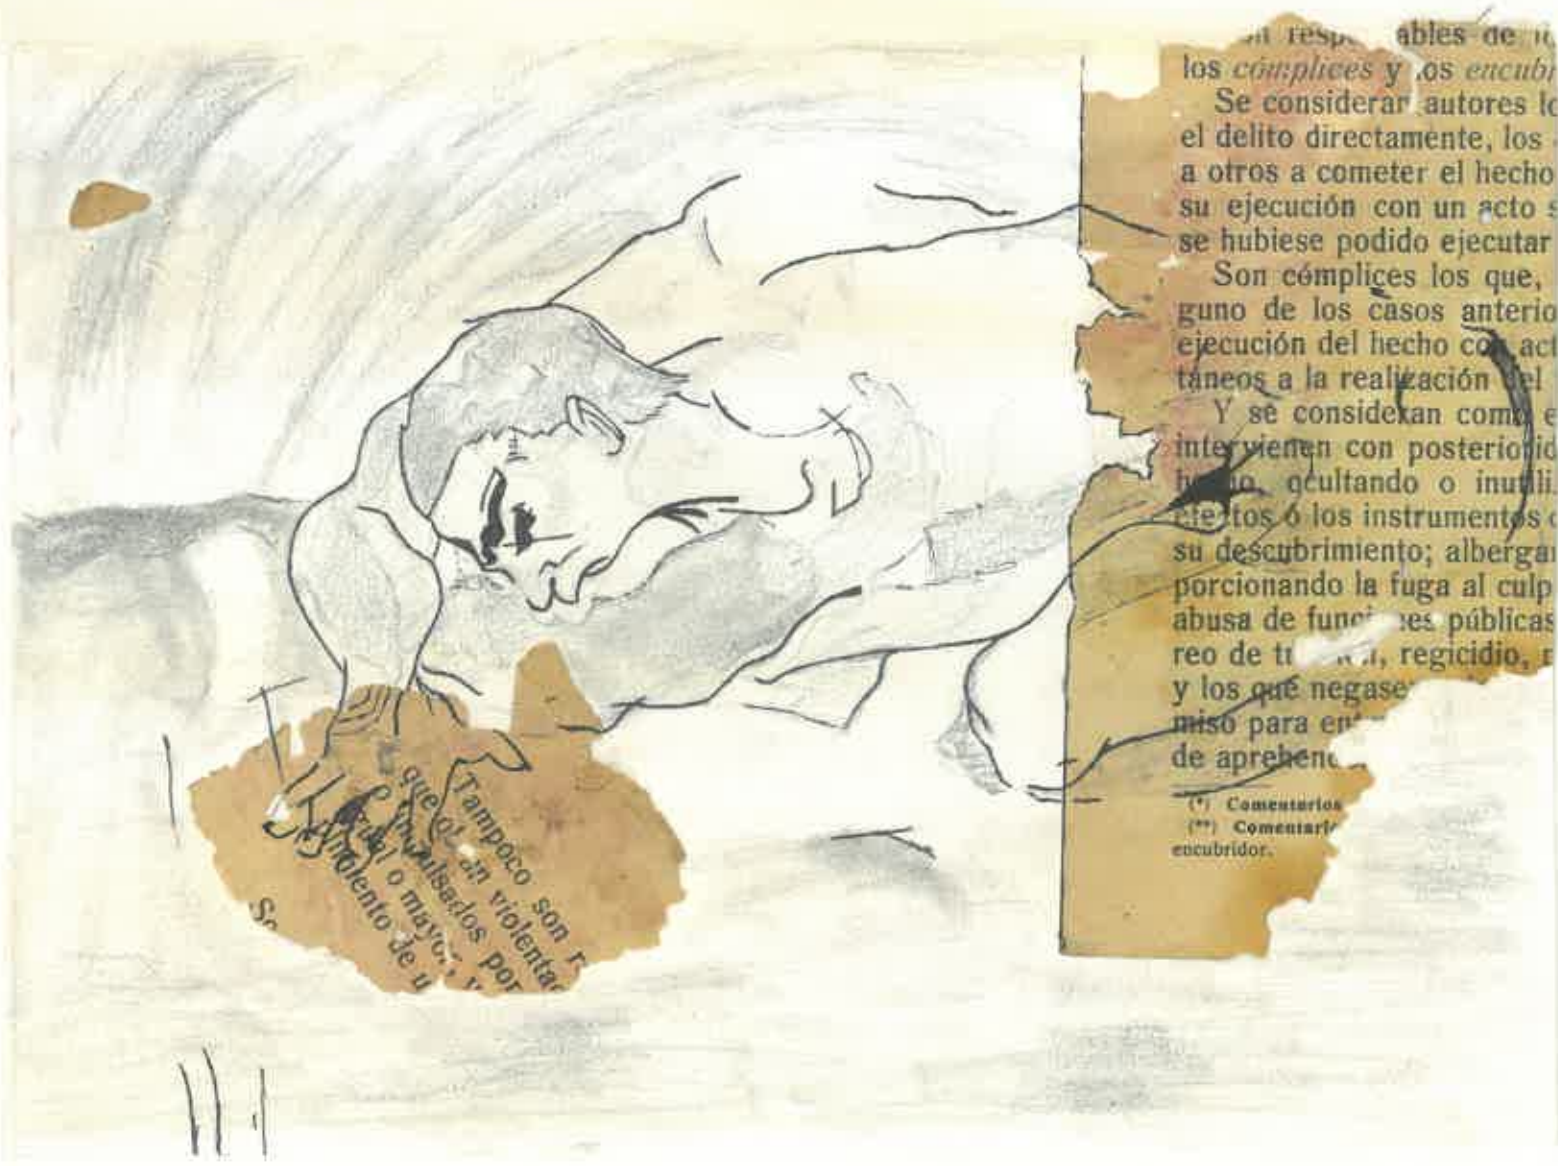 ables de
los cómplices y los encubr
Se consideran autores lo
el delito directamente, los
a otros a cometer el hecho
su ejecución con un acto s
se hubiese podido ejecutar
Son cómplices los que,
guno de los casos anterio
ejecución del hecho con act
táneos a la realización del
Y se consideran como e
intervienen con posteriorid
ocultando o inutili
efectos ó los instrumentos
su descubrimiento; albergan
porcionando la fuga al culp
abusa de funciones públicas
reo de regicidio,
y los que negase
miso para
de aprehen
(*) Comentarios
(**) Comentario
encubridor.
Tampoco son r
que violentad
impulsados por
o mayor, y
de u